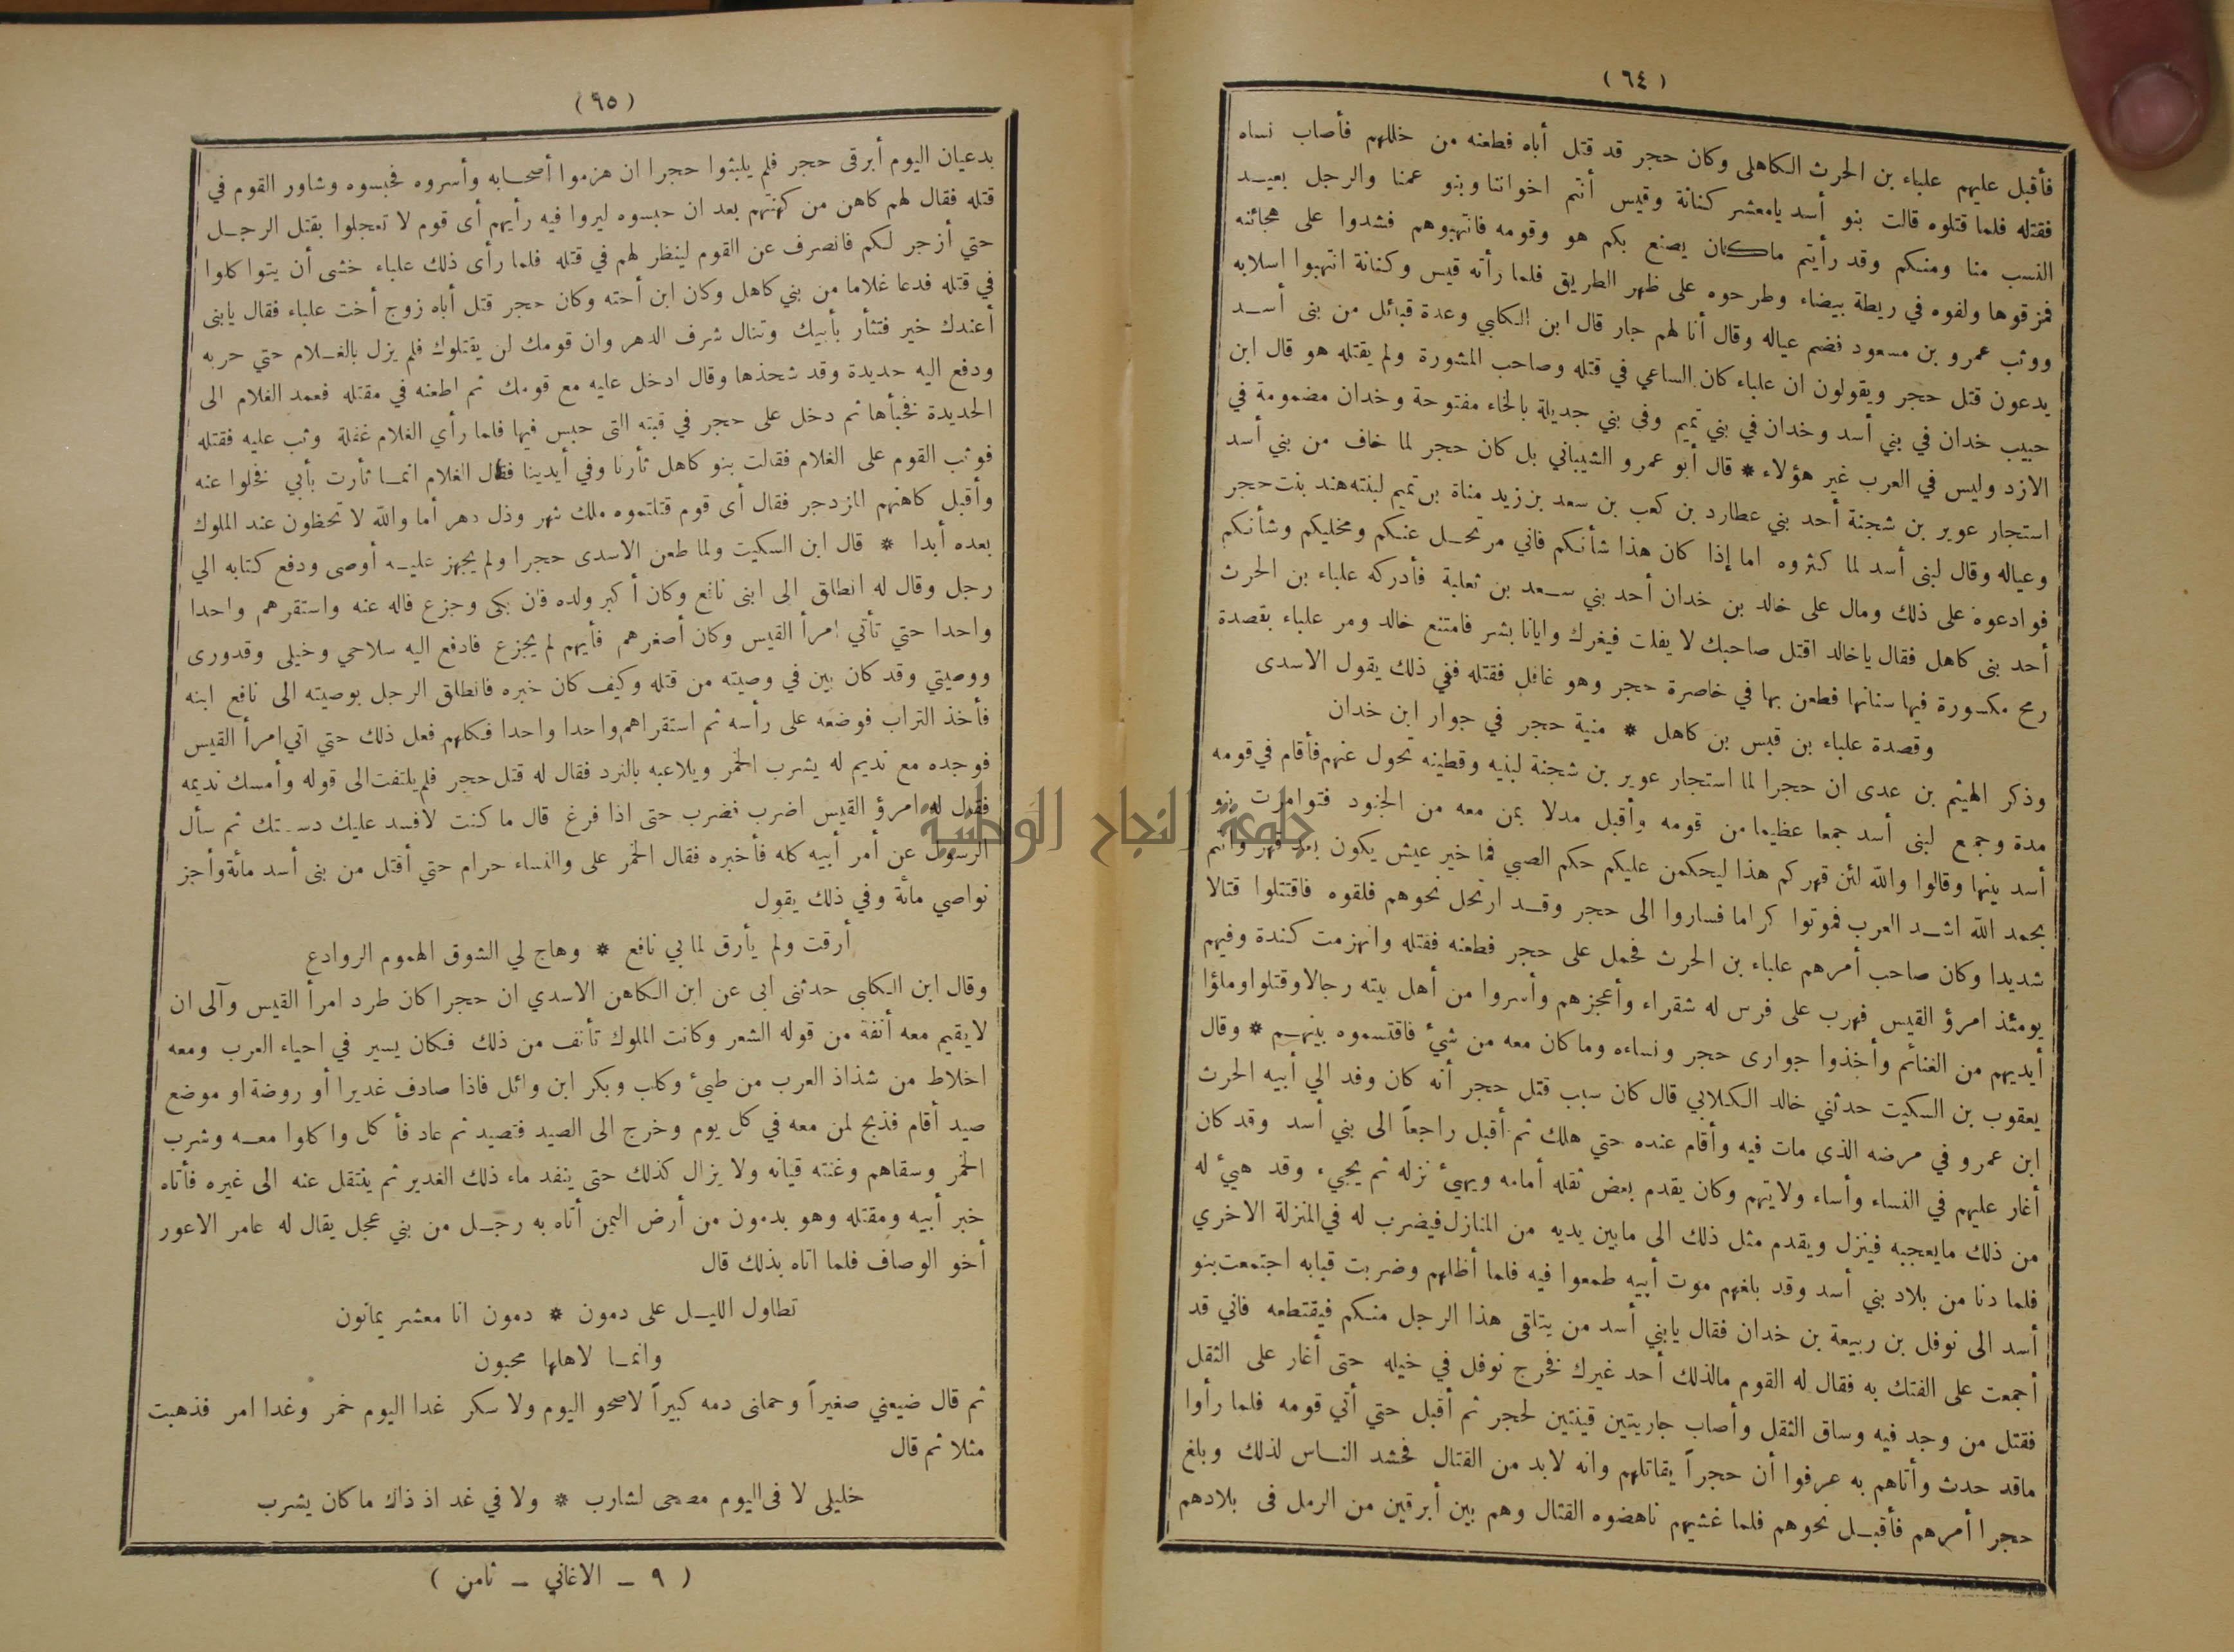 ( ٦٤ )
فأقبل عليهم علباء بن الحرث الكاهلى وكان حجر قد قتل أباه فطعنه من خللهم فأصاب نساه
فقتله فلما قتلوه قالت بنو أسد يامعشر كنانة وقيس أنتم اخواننا وبنو عمنا والرجل بعيد
النسب منا ومنكم وقد رأيتم ماكان يصنع بكم هو وقومه فانتهبوهم فشدوا على هجائنه
فمزقوها ولفوه في ريطة بيضاء وطرحوه على ظهر الطريق فلما رأته قيس وكنانة انتهبوا اسلابه
ووثب عمرو بن مسعود فضم عياله وقال أنا لهم جار قال ابن الكلبي وعدة قبائل من بنى أسد
يدعون قتل حجر ويقولون ان علباء كان الساعي في قتله وصاحب المشورة ولم يقتله هو قال ابن
حبيب خدان في بني أسد وخدان في بني تميم وفى بني جديلة بالخاء مفتوحة وخدان مضمومة في
الازد وليس في العرب غير هؤلاء * قال أبو عمرو الشيباني بل كان حجر لما خاف من بني أسد
استجار عوير بن شجنة أحد بني عطارد بن كعب بن سعد بن زيد مناة بن تميم لبنته هند بنت حجر
وعياله وقال لبنى أسد لما كثروه اما إذا كان هذا شأنكم فاني مرتحل عنكم ومخليكم وشأنكم
فوادعوه على ذلك ومال على خالد بن خدان أحد بني سعد بن ثعلبة فأدركه علباء بن الحرث
أحد بنى كاهل فقال ياخالد اقتل صاحبك لا يفلت فيغرك وايانا بشر فامتنع خالد ومر علباء بقصدة
رمح مكسورة فيها سنانها فطعن بها في خاصرة حجر وهو غافل فقتله ففي ذلك يقول الاسدى
وقصدة علباء بن قيس بن كاهل * منية حجر في جوار ابن خدان
وذكر الهيثم بن عدى ان حجرا لما استجار عوير بن شجنة لبنيه وقطينه تحول عنهم فأقام في قومه
مدة وجمع لبنى أسد جمعا عظيما من قومه وأقبل مدلا بمن معه من الجنود فتوامرت بنو
أسد بينها وقالوا والله لئن قهركم هذا ليحكمن عليكم حكم الصبي فما خير عيش يكون بعد قهر وأنتم
بحمد الله اشد العرب فموتوا كراما فساروا الى حجر وقد ارتحل نحوهم فلقوه فاقتتلوا قتالا
شديدا وكان صاحب أمرهم علباء بن الحرث فحمل على حجر فطعنه فقتله وانهزمت كندة وفيهم
يومئذ امرؤ القيس فهرب على فرس له شقراء وأعجزهم وأسروا من أهل بيته رجالا وقتلوا وملؤا
أيديهم من الغنائم وأخذوا جوارى حجر ونساءه وما كان معه من شئ فاقتسموه بينهم * وقال
يعقوب بن السكيت حدثني خالد الكلابي قال كان سبب قتل حجر أنه كان وفد الي أبيه الحرث
ابن عمرو في مرضه الذى مات فيه وأقام عنده حتي هلك ثم أقبل راجعاً الى بني أسد وقد كان
أغار عليهم في النساء وأساء ولايتهم وكان يقدم بعض ثقله أمامه ويهيئ نزله ثم يجيء وقد هيئ له
من ذلك مايعجبه فينزل ويقدم مثل ذلك الى مابين يديه من المنازل فيضرب له في المنزلة الاخري
فلما دنا من بلاد بني أسد وقد بلغهم موت أبيه طمعوا فيه فلما أظلهم وضربت قبابه اجتمعت بنو
أسد الى نوفل بن ربيعة بن خدان فقال يابني أسد من يتلقى هذا الرجل منكم فيقتطعه فاني قد
أجمعت على الفتك به فقال له القوم مالذلك أحد غيرك فخرج نوفل في خيله حتى أغار على الثقل
فقتل من وجد فيه وساق الثقل وأصاب جاريتين قينتين لحجر ثم أقبل حتي أتي قومه فلما رأوا
ماقد حدث وأتاهم به عرفوا أن حجراً يقاتلهم وانه لابد من القتال فحشد الناس لذلك وبلغ
حجرا أمرهم فأقبل نحوهم فلما غشيهم ناهضوه القتال وهم بين أبرقين من الرمل فى بلادهم
( ٦٥ )
يدعيان اليوم أبرقى حجر فلم يلبثوا حجرا ان هزموا أصحابه وأسروه فحبسوه وشاور القوم في
قتله فقال لهم كاهن من كهنتهم بعد ان حبسوه ليروا فيه رأيهم أى قوم لا تعجلوا بقتل الرجل
حتي أزجر لكم فانصرف عن القوم لينظر لهم في قتله فلما رأى ذلك علباء خشى أن يتواكلوا
في قتله فدعا غلاما من بني كاهل وكان ابن أخته وكان حجر قتل أباه زوج أخت علباء فقال يابنى
أعندك خير فتثأر بأبيك وتنال شرف الدهر وان قومك لن يقتلوك فلم يزل بالغلام حتي حربه
ودفع اليه حديدة وقد شحذها وقال ادخل عليه مع قومك ثم اطعنه في مقتله فعمد الغلام الى
الحديدة فخبأها ثم دخل على حجر في قبته التى حبس فيها فلما رأي الغلام غفلة وثب عليه فقتله
فوثب القوم على الغلام فقالت بنو كاهل ثأرنا وفي أيدينا فقال الغلام انما ثأرت بأبي فخلوا عنه
وأقبل كاهنهم المزدجر فقال أى قوم قتلتموه ملك شهر وذل دهر أما والله لا تحظون عند الملوك
بعده أبدا * قال ابن السكيت ولما طعن الاسدى حجرا ولم يجهز عليه أوصى ودفع كتابه الي
رجل وقال له انطلق الى ابنى نافع وكان أكبر ولده فان بكى وجزع فاله عنه واستقرهم واحدا
واحدا حتي تأتي امرأ القيس وكان أصغرهم فأيهم لم يجزع فادفع اليه سلاحي وخيلى وقدورى
ووصيتي وقد كان بين في وصيته من قتله وكيف كان خبره فانطلق الرجل بوصيته الى نافع ابنه
فأخذ التراب فوضعه على رأسه ثم استقراهم واحدا واحدا فكلهم فعل ذلك حتي اتي امرأ القيس
فوجده مع نديم له يشرب الخمر ويلاعبه بالنرد فقال له قتل حجر فلم يلتفت الى قوله وأمسك نديمه
فقال له امرؤ القيس اضرب فضرب حتى اذا فرغ قال ما كنت لافسد عليك دستك ثم سأل
الرسول عن أمر أبيه كله فأخبره فقال الخمر على والنساء حرام حتي أقتل من بنى أسد مائة وأجز
نواصي مائة وفي ذلك يقول
أرقت ولم يأرق لما بي نافع * وهاج لي الشوق الهموم الروادع
وقال ابن الكلبى حدثنى ابى عن ابن الكاهن الاسدي ان حجرا كان طرد امرأ القيس وآلى ان
لايقيم معه أنفة من قوله الشعر وكانت الملوك تأنف من ذلك فكان يسير في احياء العرب ومعه
اخلاط من شذاذ العرب من طيئ وكلب وبكر ابن وائل فاذا صادف غديرا أو روضة او موضع
صيد أقام فذبح لمن معه في كل يوم وخرج الى الصيد فتصيد ثم عاد فأكل واكلوا معه وشرب
الخمر وسقاهم وغنته قيانه ولا يزال كذلك حتى ينفد ماء ذلك الغدير ثم ينتقل عنه الى غيره فأتاه
خبر أبيه ومقتله وهو بدمون من أرض اليمن أتاه به رجل من بني عجل يقال له عامر الاعور
أخو الوصاف فلما اتاه بذلك قال
تطاول الليل على دمون * دمون انا معشر يمانون
وانما لاهلها محبون
ثم قال ضيعني صغيراً وحملنى دمه كبيراً لاصحو اليوم ولا سكر غدا اليوم خمر وغدا امر فذهبت
مثلا ثم قال
خليلى لا فى اليوم مصحى لشارب * ولا في غد اذ ذاك ما كان يشرب
( ٩ ـ الاغاني ـ ثامن )
جامعة النجاح الوطنية